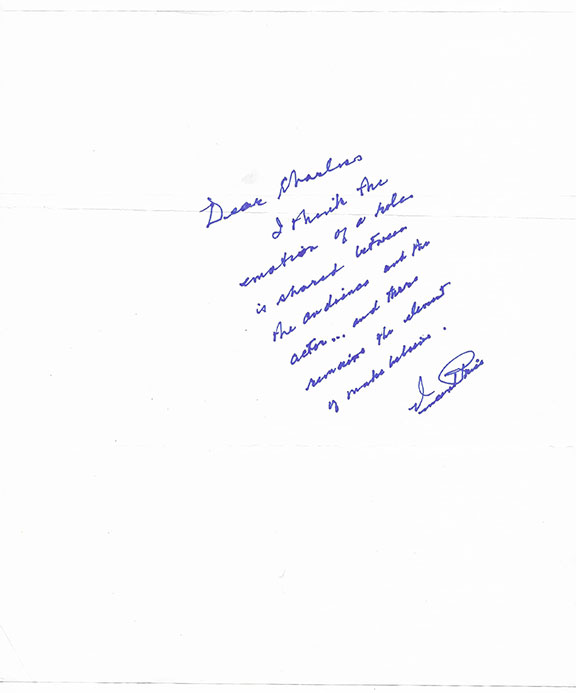 Dear Charles
I think the
emotion of a role
is shared between
the audience and the
actor... and there
remains the element
of make believe.
Vincent Price